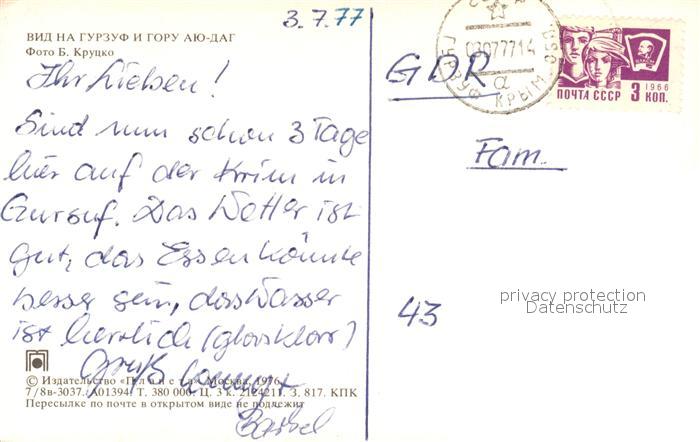 3.7.77
ВИД НА ГУРЗУФ И ГОРУ АЮ-ДАГ
Фото Б. Круцко
Ihr Lieben!
Sind nun schon 3 Tage
hier auf der Krim in
Gursuf. Das Wetter ist
gut, das Essen könnte
besser sein, das Wasser
ist herrlich (glasklar)
Gruß
Bärbel
© Издательство «Планета» Москва, 1976
7/8в-3037. А01394. Т. 380 000. Ц. 3 к. 2124211. З. 817. КПК
Пересылке по почте в открытом виде не подлежит
ГУРЗУФ КРЫМ. ОБЛ
03077714
а
ПОЧТА СССР 3 КОП.
1966
GDR
Fam.
43
privacy protection
Datenschutz